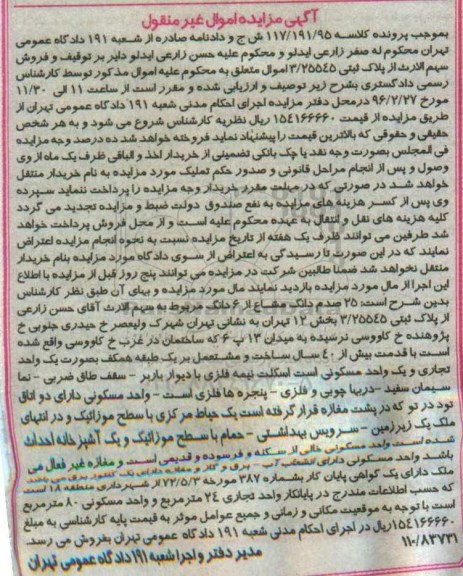 آگهی مزایده اموال غیر منقول
بموجب پرونده کلاسه ۱۱۷/۱۹۱/۹۵ ش ج و دادنامه صادره از شعبه ۱۹۱ دادگاه عمومی
تهران محکوم له صفر زارعی ایدلو و محکوم علیه حسن زارعی ایدلو دایر بر توقیف و فروش
سهم الارث از پلاک ثبتی ۳/۲۵۵۴۵ اموال متعلق به محکوم علیه اموال مذکور توسط کارشناس
رسمی دادگستری بشرح زیر توصیف و ارزیابی شده و مقرر است از ساعت ۱۱ الی ۱۱/۳۰
مورخ ۹۶/۲/۲۷ درمحل دفتر مزایده اجرای احکام مدنی شعبه ۱۹۱ دادگاه عمومی تهران از
طریق مزایده از قیمت ۱۵۴۱۶۶۶۶۰ ریال نظریه کارشناس شروع می شود و به هر شخص
حقیقی و حقوقی که بالاترین قیمت را پیشنهاد نماید فروخته خواهد شد ده درصد وجه مزایده
فی المجلس بصورت وجه نقد یا چک بانکی تضمینی از خریدار اخذ و الباقی ظرف یک ماه از وی
وصول و پس از انجام مراحل قانونی و صدور حکم تملیک مورد مزایده به نام خریدار منتقل
خواهد شد در صورتی که در مهلت مقرر خریدار وجه مزایده را پرداخت ننماید سپرده
وی پس از کسر هزینه های مزایده به نفع صندوق دولت ضبط و مزایده تجدید می گردد
کلیه هزینه های نقل و انتقال به عهده محکوم علیه است و از محل فروش پرداخت خواهد
شد طرفین می توانند ظرف یک هفته از تاریخ مزایده نسبت به نحوه انجام مزایده اعتراض
نمایند که در این صورت تا رسیدگی به اعتراض از سوی دادگاه مورد مزایده بنام خریدار
منتقل نخواهد شد ضمنا طالبین شرکت در مزایده می توانند پنج روز قبل از مزایده با اطلاع
این اجرا از مال مورد مزایده بازدید نمایند مال مورد مزایده و بهای آن طبق نظر کارشناس
بدین شرح است: ۲۵ صدم دانگ مشاع از ۶ دانگ مربوط به سهم الارث آقای حسن زارعی
از پلاک ثبتی ۳/۲۵۵۴۵ بخش ۱۲ تهران به نشانی تهران شهرک ولیعصر خ حیدری جنوبی خ
پژوهنده خ کاووسی نرسیده به میدان ۱۳ پ ۶ که ساختمان در غرب خ کاووسی واقع شده
است با قدمت بیش از ۴۰ سال ساخت و مشتمل بر یک طبقه همکف بصورت یک واحد
تجاری و یک واحد مسکونی است اسکلت نیمه فلزی با دیوار باربر - سقف طاق ضربی - نما
سیمان سفید -دربها چوبی و فلزی - پنجره ها فلزی است - واحد مسکونی دارای دو اتاق
تود در تو که در پشت مغازه قرار گرفته است یک حیاط مرکزی با سطح موزائیک و در انتهای
ملک یک زیرزمین - سرویس بهداشتی - حمام با سطح موزائیک و یک آشپزخانه احداث
شده است واحد مسکونی خالی از سکنه و فرسوده و قدیمی است و مغازه غیر فعال می
باشد واحد مسکونی دارای انشعاب آب - برق و گاز و مغازه دارای یک کنتور برق می باشد
ملک دارای یک گواهی پایان کار بشماره ۳۸۷ مورخه ۷۲/۵/۳ از شهرداری منطقه ۱۸ است
که حسب اطلاعات مندرج در پایانکار واحد تجاری ۲۴ مترمربع و واحد مسکونی ۸۰ مترمربع
است با توجه به موقعیت مکانی و زمانی و جمیع عوامل موثر به قیمت پایه کارشناسی به مبلغ
۱۵۴۱۶۶۶۶۰ریال در اجرای احکام مدنی شعبه ۱۹۱ دادگاه عمومی تهران بفروش می رسد.
۱۱۰/۸۳۷۳۱ مدیر دفتر و اجرا شعبه ۱۹۱ دادگاه عمومی تهران